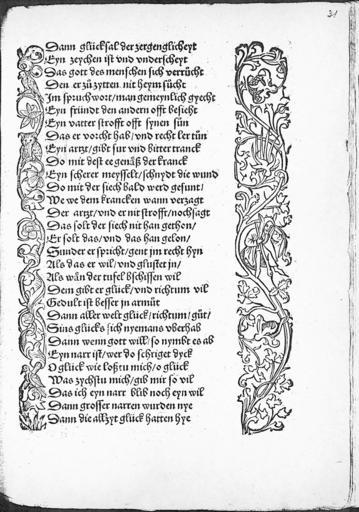 31
Dann glücksal der zergenglicheyt
Eyn zeychen ist vnd vnderscheyt
Das gott des menschen sich verrücht
Den er zů zytten nit heym sücht
Im spruchwort / man gemeynlich gycht
Eyn fründt den andern offt besicht
Eyn vatter strofft offt synen sün
Das er vorcht hab / vnd recht ler tün
Eyn artzt / gibt sur vnd bitter tranck
Do mit dest ee genäß der kranck
Eyn scherer meysselt / schnydt die wund
Do mit der siech bald werd gesunt /
We we dem krancken wann verzagt
Der artzt / vnd er nit strofft / noch sagt
Das solt der siech nit han gethon /
Er solt das / vnd das han gelon /
Sunder er spricht / gent jm recht hyn
Als das er wil / vnd glustet jn /
Als wän der tüfel bschissen wil
Dem gibt er glück / vnd richtum vil
Gedult ist besser jn armüt
Dann aller welt glück / richtum / güt /
Sins glücks sich nyemans vberhab
Dann wenn gott will / so nymbt es ab
Eyn narr ist / wer do schriget dyck
O glück wie loßtu mich / o glück
Was zychstu mich / gib mir so vil
Das ich eyn narr blib noch eyn wil
Dann grosser narren wurden nye
Dann die allzyt glück hatten hye